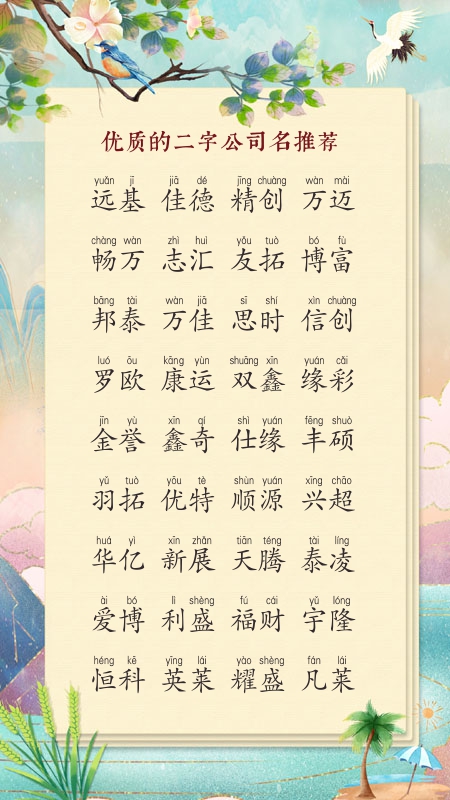 优质的二字公司名推荐
yuǎn jī jiā dé jīng chuàng wàn mài
远基 佳德 精创 万迈
chàng wàn zhì huì yǒu tuò bó fù
畅万 志汇 友拓 博富
bāng tài wàn jiā sī shí xìn chuàng
邦泰 万佳 思时 信创
luó ōu kāng yùn shuāng xīn yuán cǎi
罗欧 康运 双鑫 缘彩
jīn yù xīn qí shì yuán fēng shuò
金誉 鑫奇 仕缘 丰硕
yǔ tuò yōu tè shùn yuán xīng chāo
羽拓 优特 顺源 兴超
huá yì xīn zhǎn tiān téng tài líng
华亿 新展 天腾 泰凌
ài bó lì shèng fú cái yǔ lóng
爱博 利盛 福财 宇隆
héng kē yīng lái yào shèng fán lái
恒科 英莱 耀盛 凡莱